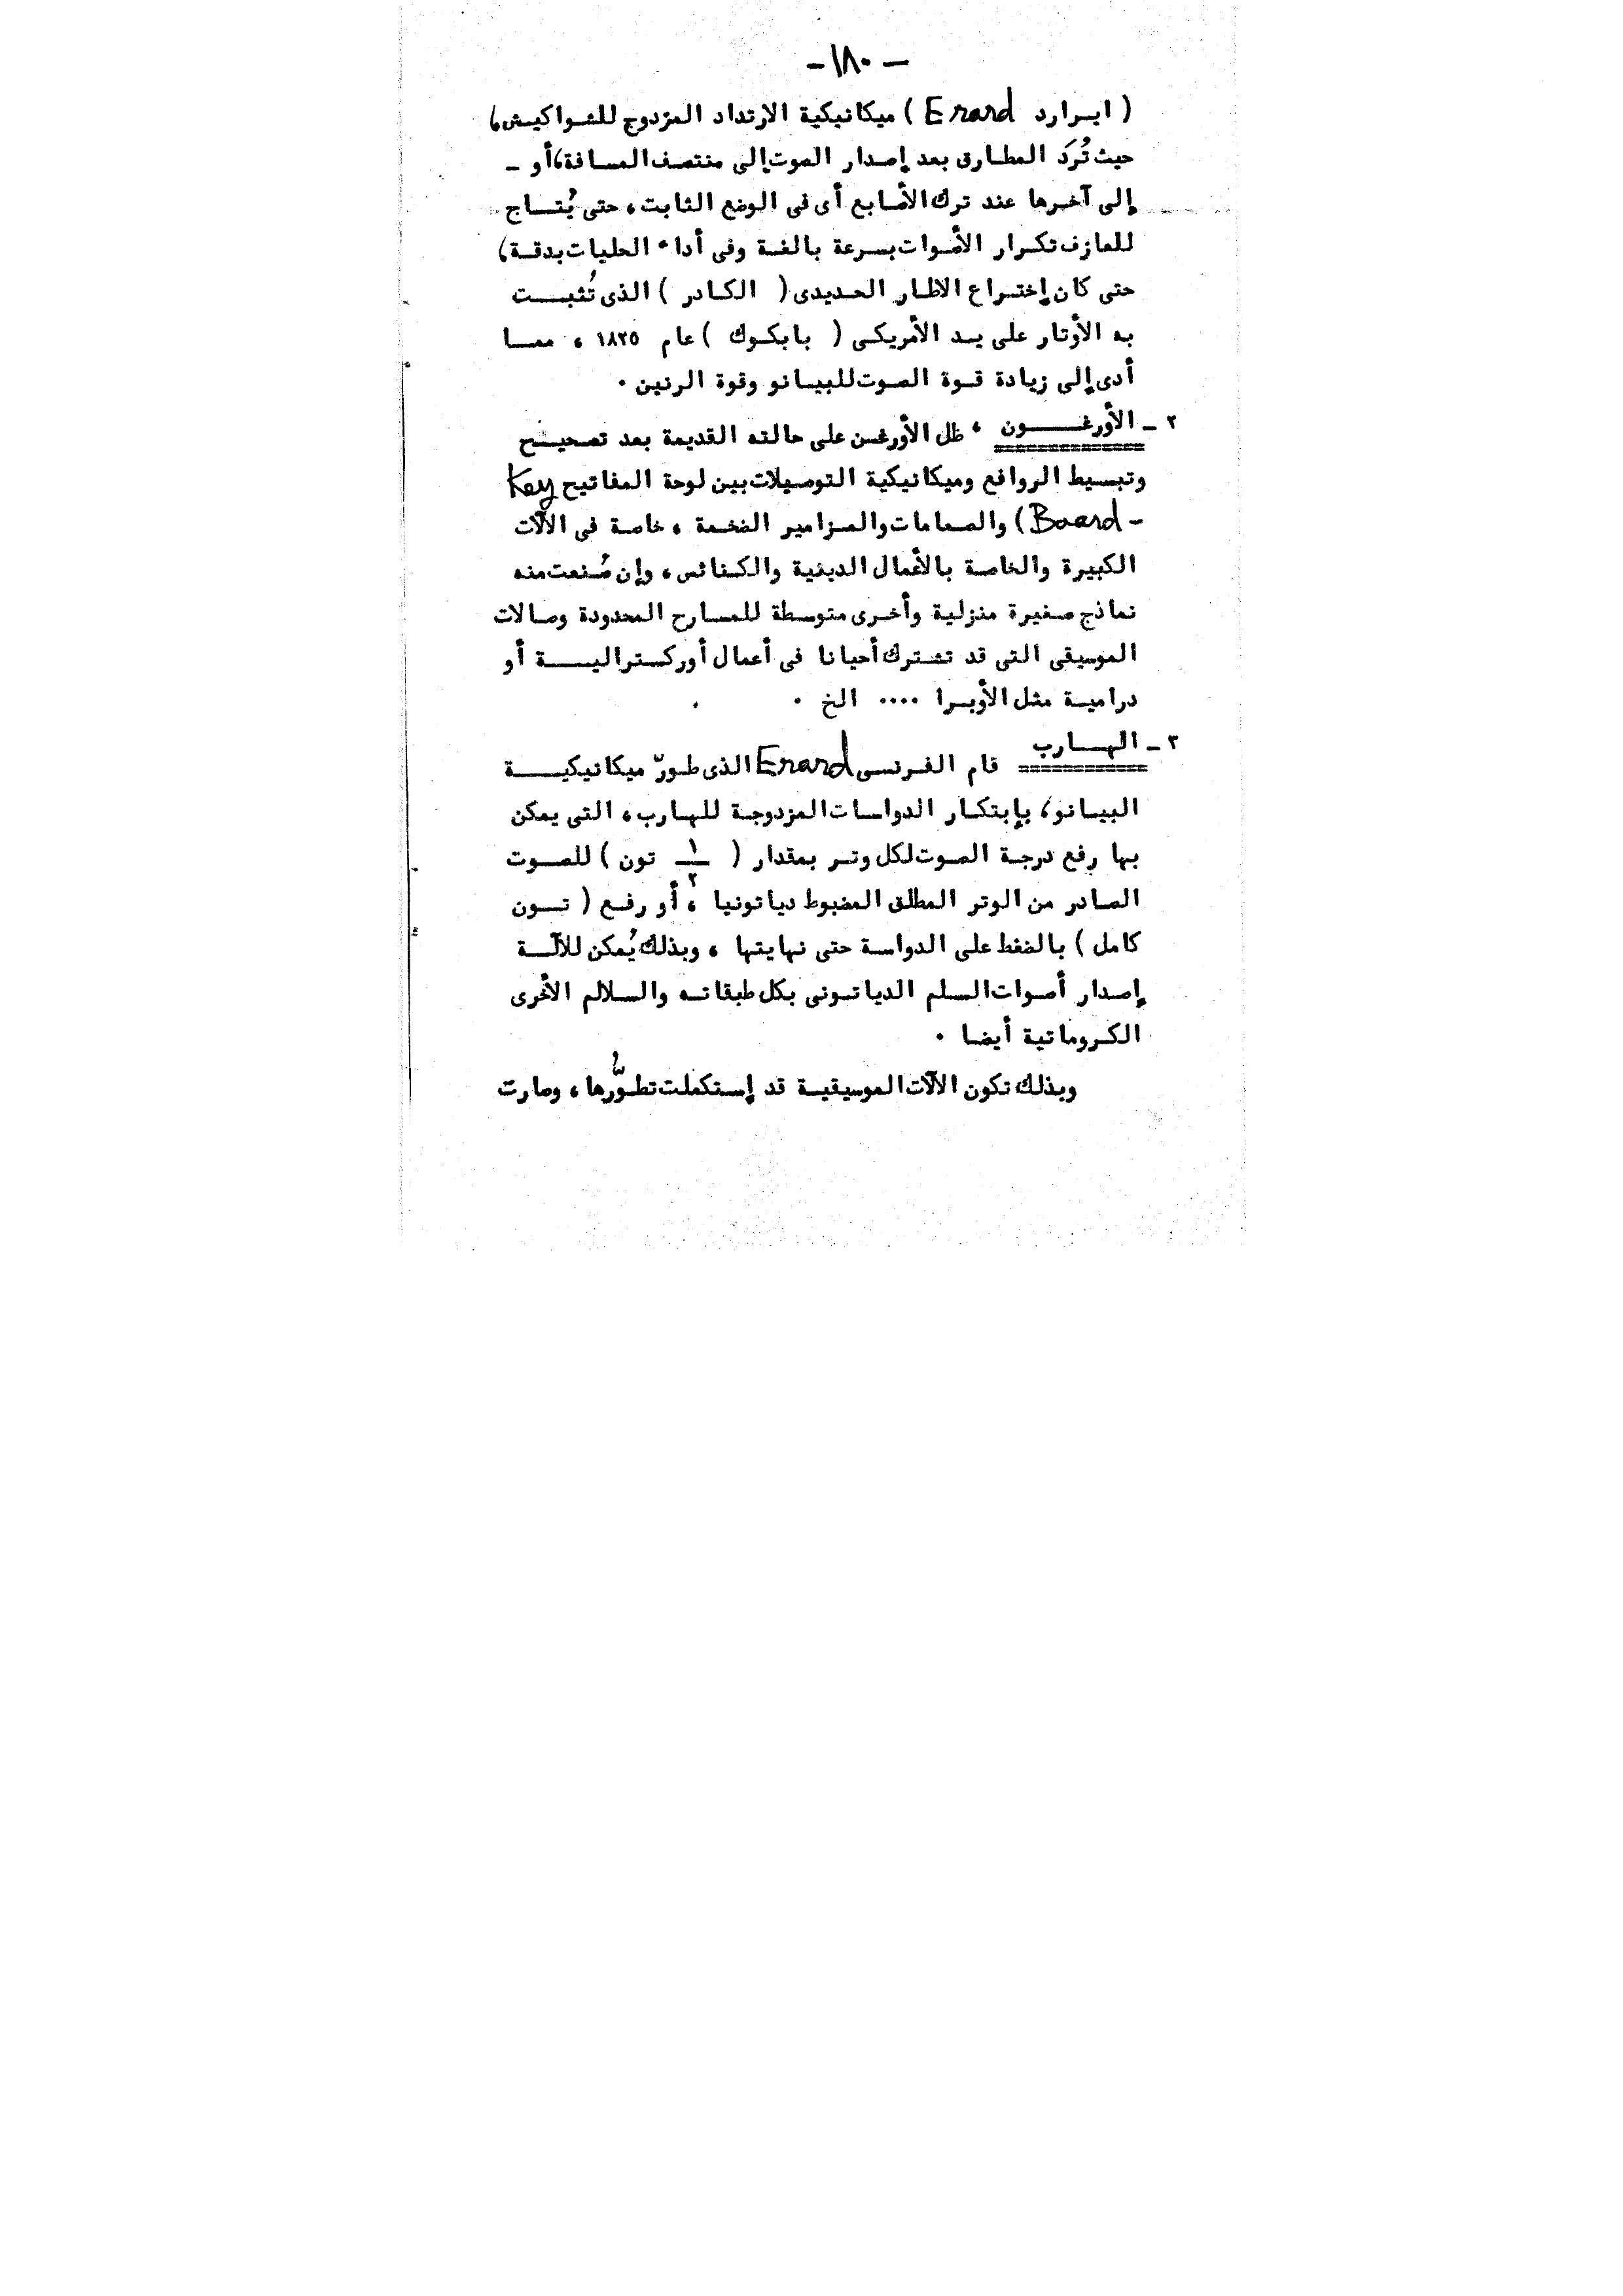 -١٨٠-
( ايرارد Erard ) ميكانيكية الارتداد المزدوج للشواكيش،
حيث تُرَد المطارق بعد إصدار الصوت إلى منتصف المسافة، أو -
إلى آخرها عند ترك الأصابع أى فى الوضع الثابت، حتى يُتاج
للعازف تكرار الأصوات بسرعة بالغة وفى أداء الحليات بدقة،
حتى كان إختراع الاطار الحديدى ( الكادر ) الذى تُثبت
به الأوتار على يد الأمريكى ( بابكوك ) عام ١٨٢٥ ، مما
أدى إلى زيادة قوة الصوت للبيانو وقوة الرنين .
٢ - الأورغون ، ظل الأورغن على حالته القديمة بعد تصحيح
وتبسيط الروافع وميكانيكية التوصيلات بين لوحة المفاتيح Key
Board - ) والصمامات والمزامير الضخمة ، خاصة فى الآلات
الكبيرة والخاصة بالأعمال الدينية والكنائس، وإن صُنعت منه
نماذج صغيرة منزلية وأخرى متوسطة للمسارح المحدودة وصالات
الموسيقى التى قد تشترك أحيانا فى أعمال أوركسترالية أو
درامية مثل الأوبرا .... الخ .
٣ - الهارب قام الفرنسى Erard الذى طورّ ميكانيكية
البيانو، بإبتكار الدواسات المزدوجة للهارب، التى يمكن
بها رفع درجة الصوت لكل وتر بمقدار ( ١/٢ تون ) للصوت
الصادر من الوتر المطلق المضبوط دياتونيا ، أو رفع ( تون
كامل ) بالضغط على الدواسة حتى نهايتها ، وبذلك يُمكن للآلة
إصدار أصوات السلم الدياتونى بكل طبقاته والسلالم الأخرى
الكروماتية أيضا .
وبذلك تكون الآلات الموسيقية قد إستكملت تطوُّرها، وصارت